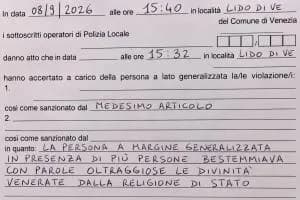 In data 08/9/2026 alle ore 15:40 in località LIDO DI VE
del Comune di Venezia
i sottoscritti operatori di Polizia Locale
danno atto che in data alle ore 15:32 in località LIDO DI VE
hanno accertato a carico della persona a lato generalizzata la/le violazione/i:
1.
così come sanzionato dal MEDESIMO ARTICOLO
2.
così come sanzionato dal
in quanto: LA PERSONA A MARGINE GENERALIZZATA
IN PRESENZA DI PIÙ PERSONE BESTEMMIAVA
CON PAROLE OLTRAGGIOSE LE DIVINITA'
VENERATE DALLA RELIGIONE DI STATO